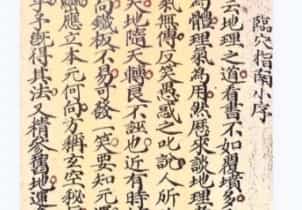 臨穴指南小序
云地理之道看書不如覆墳多
為體理氣為用然歷來談地理者
氣無傳反笑愚惑之叱說人所
天地隨天轉良不誣也近有時
尚鐵板不易可發一笑要知元運
應立本元何向方稱玄空秘
子予既得其法又積癸舊地運